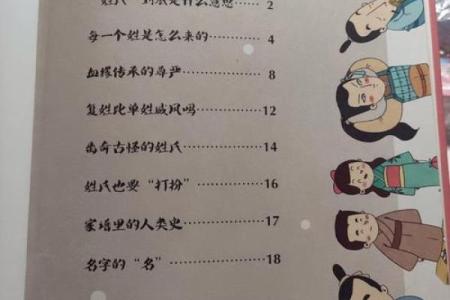 每一个姓是怎么来的 4
血缘传承的尊严 8
复姓比单姓威风吗 12
离奇古怪的姓氏 14
姓氏也要“打扮” 16
家谱里的人类史 17
名字的“名” 18
2